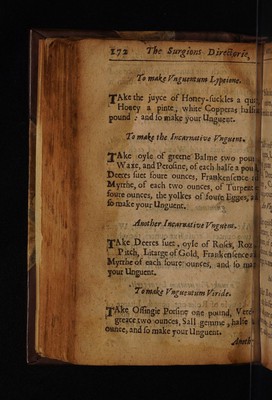 172 The Surgions Directorie,
To make Vnguentum Lypsione.
TAke the juyce of Honey-suckles a
Honey a pinte, white Copperas halfe
pound : and so make your Unguent.
To make the Incarnative Vnguent.
TAke oyle of greene Balme two
Waxe, and Perosine, of each halfe a
Deeres suet foure ounces, Frankensence
Myrrhe, of each two ounces, of
foure ounces, the yolkes of foure Egges,
so make your Unguent.
Another Incarnative Vnguent.
TAke Deeres suet, oyle of Roses,
Pitch, Litarge of Gold, Frankensence
Myrrhe of each foure ounces, and so
your Unguent.
To make Vnguentum Viride.
TAke Offingie Porsine one pound,
greace two ounces, Sall gemme, halfe
ounce, and so make your Unguent.